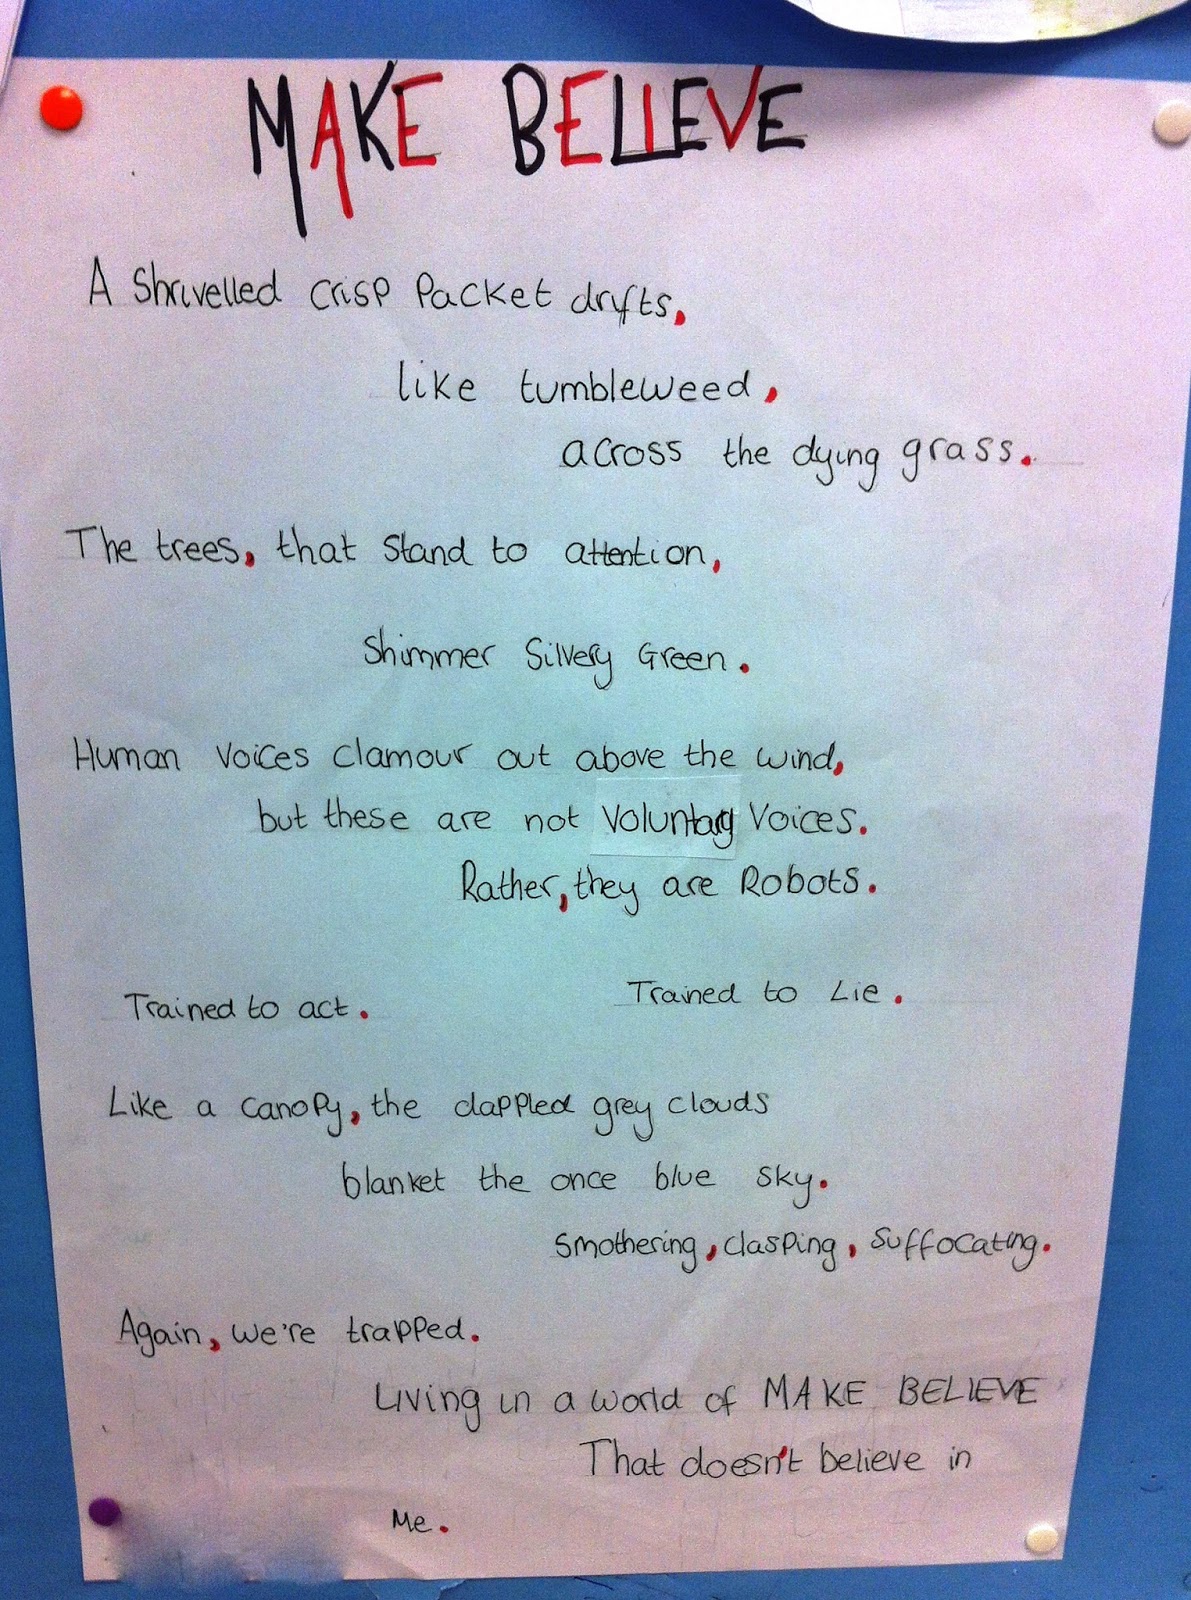 MAKE BELIEVE
A Shrivelled crisp packet drifts,
like tumbleweed,
across the dying grass.
The trees, that stand to attention,
Shimmer Silvery Green.
Human voices clamour out above the wind,
but these are not voluntary voices.
Rather, they are Robots.
Trained to act. Trained to Lie.
Like a canopy, the dappled grey clouds
blanket the once blue sky.
Smothering, clasping, suffocating.
Again, we're trapped.
Living in a world of MAKE BELIEVE
That doesn't believe in
Me.